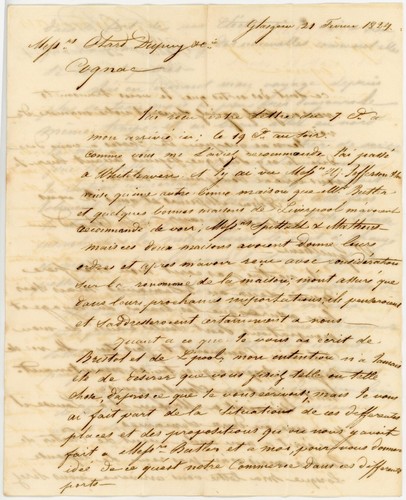 Glasgow 21 Fevrier 1824.
Mess.rs Otard Dupuy & C.ie
Cognac
votre lettre du 7 Ct
mon arrivé ici: le 19 Ct au soir
Comme vous me l'aviez recommandé J'ai passé
à Whitehaven et j'y ai vu Mess.rs Jefferson
ainsi qu'une autre bonne maison que Mr Butler
et quelques bonnes maisons de Liverpool m'avoient
recommandé de voir, Mess.rs &
mais ces deux maisons avoient donné leurs
ordres et après m'avoir reçu avec considération
sur la renommée de la maison, m'ont assuré que
dans leurs prochaines importations, ils penseroient
et s'addresseroient certainement a nous
Quant a ce que je vous ai écrit de
Bristol et de Lpool, mon intention n'a jamais
été de désirer que vous fassiez telle ou telle
chose d'après ce que je vous écrivais, mais je vous
ai fait part de la situation de ces differentes
places et des propositions que me
fait a Mess.rs Butler et a moi, pour vous donner
idée de ce qu'est notre Commerce dans ces differens
ports